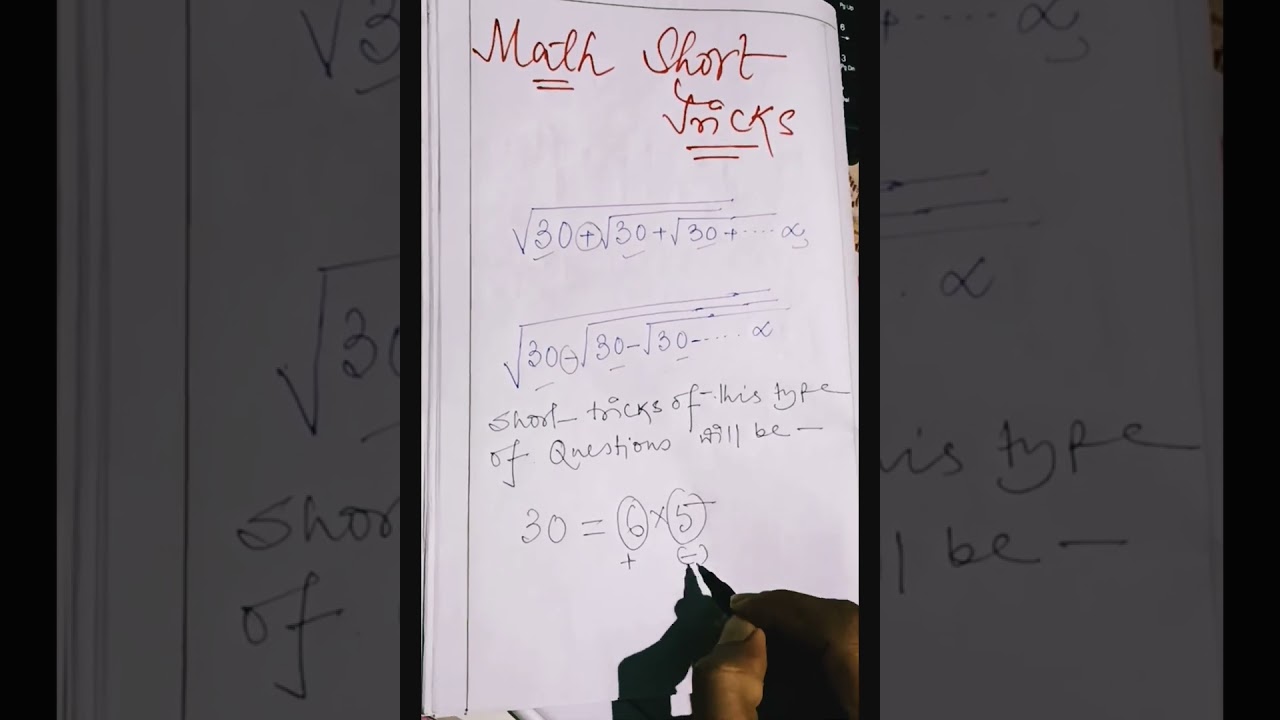 Math Short
Tricks
√30+√30+√30+.... ∝
√30-√30-√30-.... ∝
Short tricks of this type
of Questions will be -
30 = 6 × 5
+ (-)